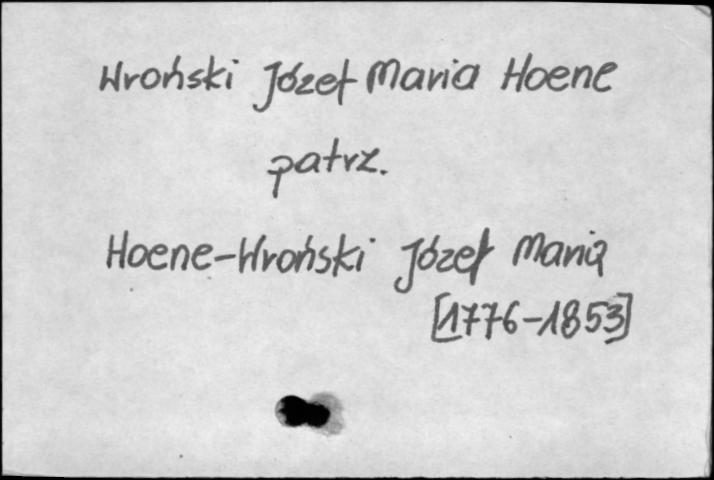 Wroński Józef Maria Hoene
patrz.
Hoene-Wroński Józef Maria
[1776-1853]